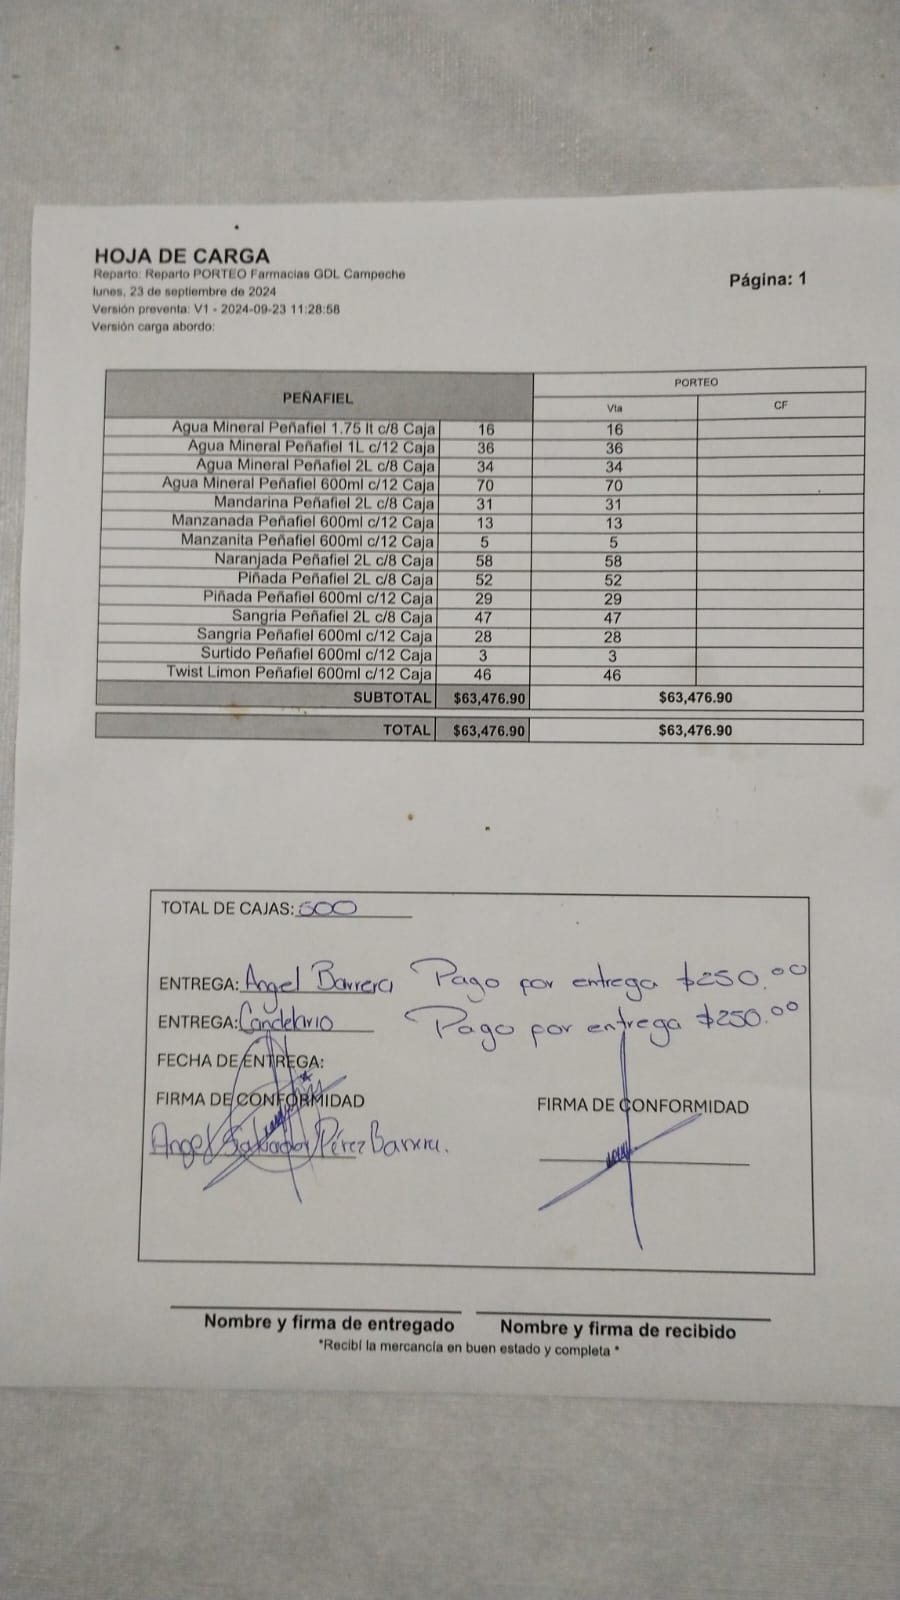 HOJA DE CARGA
Reparto: Reparto PORTEO Farmacias GDL Campeche
lunes, 23 de septiembre de 2024
Versión preventa: V1 - 2024-09-23 11:28:58
Versión carga abordo:
Página: 1
PEÑAFIEL PORTEO
Vta CF
Agua Mineral Peñafiel 1.75 lt c/8 Caja 16 16
Agua Mineral Peñafiel 1L c/12 Caja 36 36
Agua Mineral Peñafiel 2L c/8 Caja 34 34
Agua Mineral Peñafiel 600ml c/12 Caja 70 70
Mandarina Peñafiel 2L c/8 Caja 31 31
Manzanada Peñafiel 600ml c/12 Caja 13 13
Manzanita Peñafiel 600ml c/12 Caja 5 5
Naranjada Peñafiel 2L c/8 Caja 58 58
Piñada Peñafiel 2L c/8 Caja 52 52
Piñada Peñafiel 600ml c/12 Caja 29 29
Sangria Peñafiel 2L c/8 Caja 47 47
Sangria Peñafiel 600ml c/12 Caja 28 28
Surtido Peñafiel 600ml c/12 Caja 3 3
Twist Limon Peñafiel 600ml c/12 Caja 46 46
SUBTOTAL $63,476.90 $63,476.90
TOTAL $63,476.90 $63,476.90
TOTAL DE CAJAS:
ENTREGA: Angel Barrera Pago por entrega $250.00
ENTREGA: Candelario Pago por entrega $250.00
FECHA DE ENTREGA:
FIRMA DE CONFORMIDAD FIRMA DE CONFORMIDAD
Angel Salvador Pérez Barrera.
Nombre y firma de entregado Nombre y firma de recibido
*Recibí la mercancía en buen estado y completa *